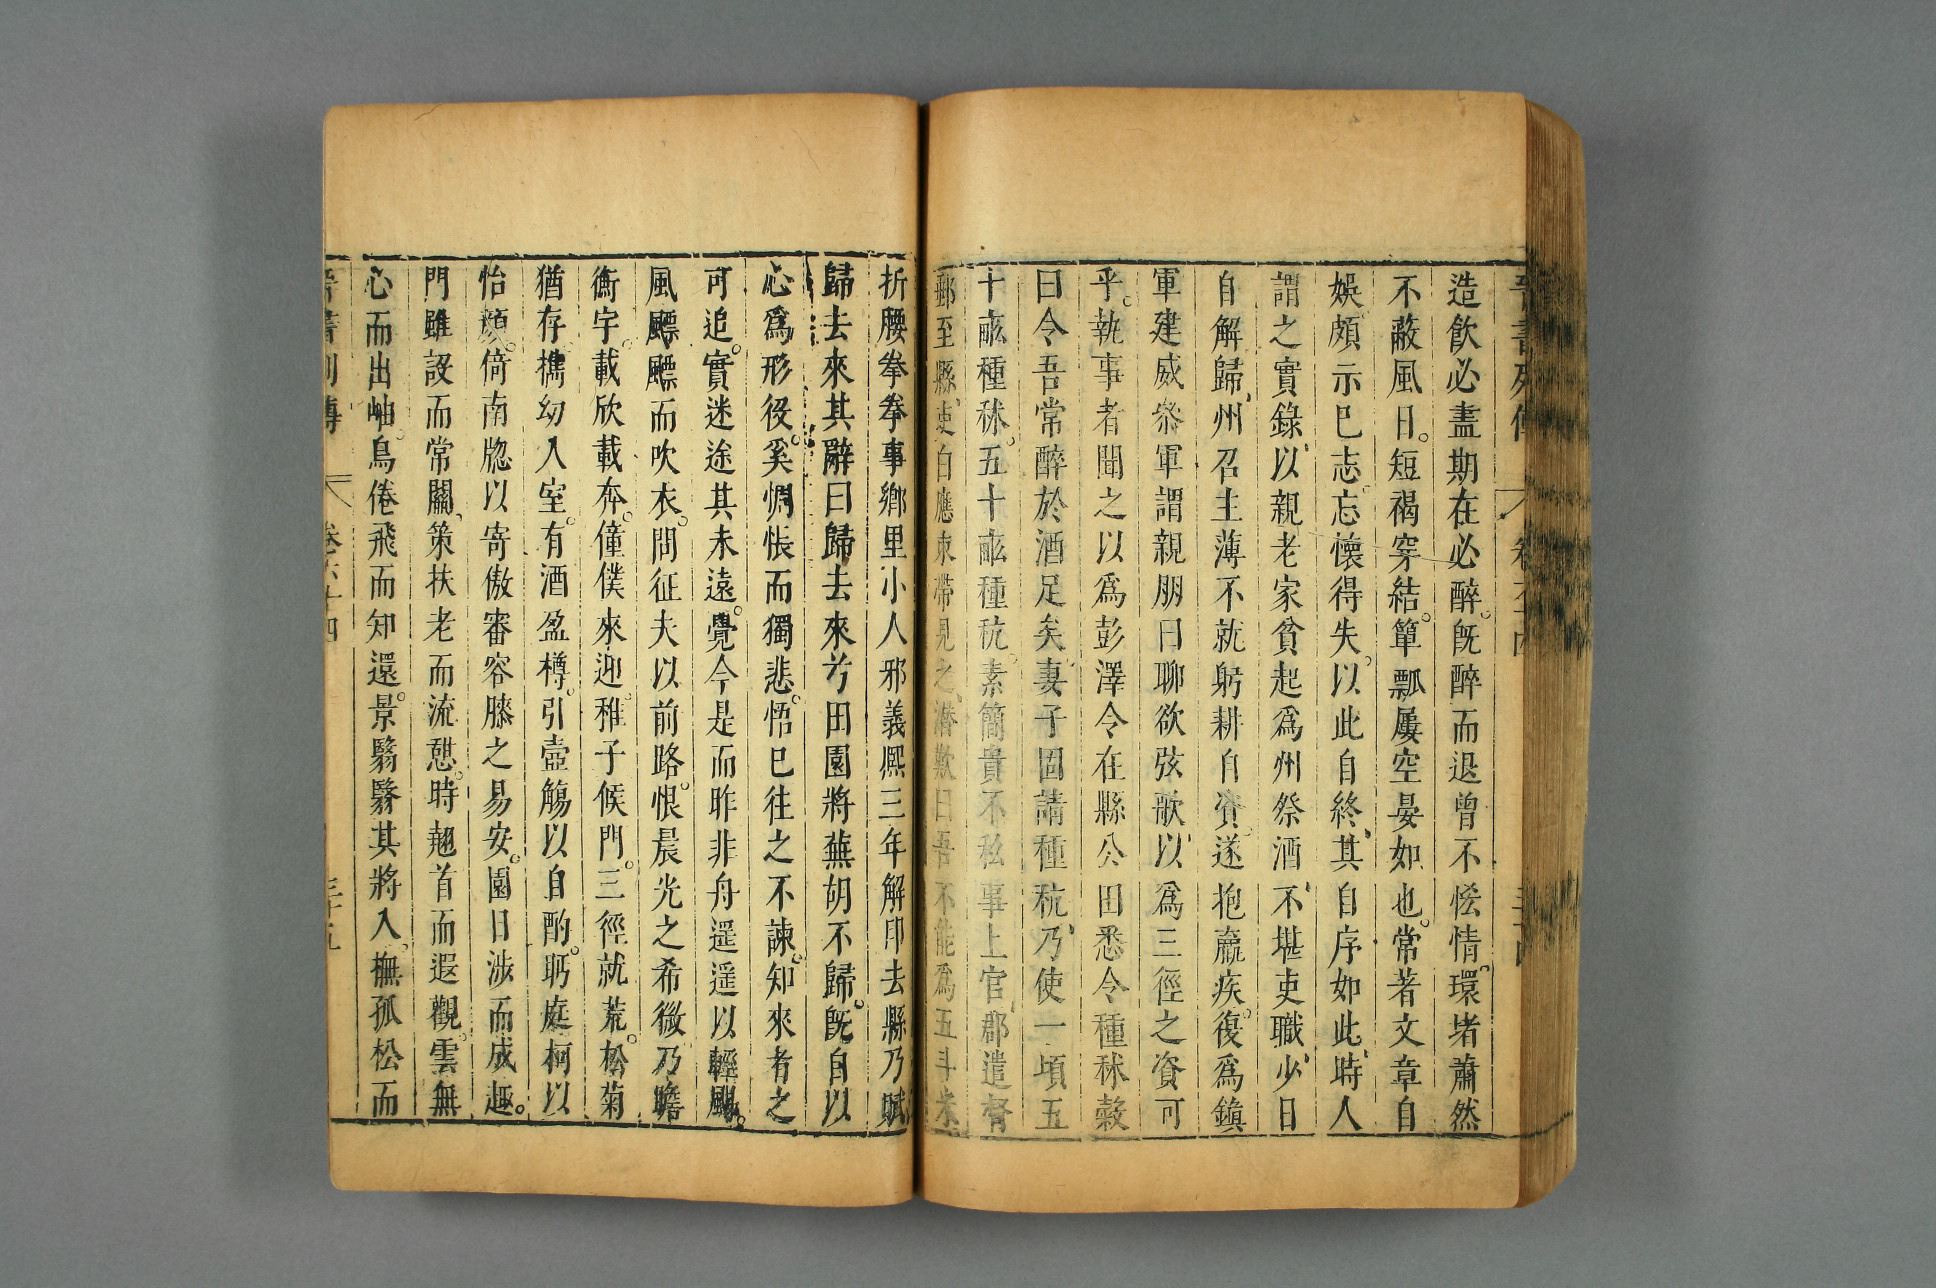 晉書列傳 卷六十四 三十四
造飲必盡期在必醉。旣醉而退曾不恡情。環堵蕭然
不蔽風日。短褐穿結。簞瓢屢空晏如也。常著文章自
娛頗示己志忘懷得失。以此自終其自序如此時人
謂之實錄以親老家貧起爲州祭酒不堪吏職少日
自解歸州召主薄不就躬耕自資。遂抱羸疾。復爲鎭
軍建威叅軍謂親朋曰聊欲弦歌以爲三徑之資可
乎。執事者聞之以爲彭澤令在縣公田悉令種秫穀
曰令吾常醉於酒足矣妻子固請種秔乃使一頃五
十畝種秫。五十畝種秔。素簡貴不私事上官郡遣督
郵至縣吏白應束帶見之潜歎曰吾不能爲五斗米
折腰拳拳事鄉里小人邪義熙三年解印去縣乃賦
歸去來其辭曰歸去來兮田園將蕪胡不歸。旣自以
心爲形役。奚惆悵而獨悲。悟已往之不諫。知來者之
可追。實迷途其未遠。覺今是而昨非舟遥遥以輕颺。
風飄飄而吹衣。問征夫以前路。恨晨光之希微乃瞻
衡宇。載欣載奔。僮僕來迎。稚子候門。三徑就荒。松菊
猶存。攜幼入室。有酒盈樽。引壺觴以自酌。眄庭柯以
怡顏。倚南牕以寄傲審容膝之易安。園日涉而成趣。
門雖設而常關。策扶老而流憩。時翹首而遐觀。雲無
心而出岫。鳥倦飛而知還。景翳翳其將入。撫孤松而
晉書列傳 卷六十四 三十五